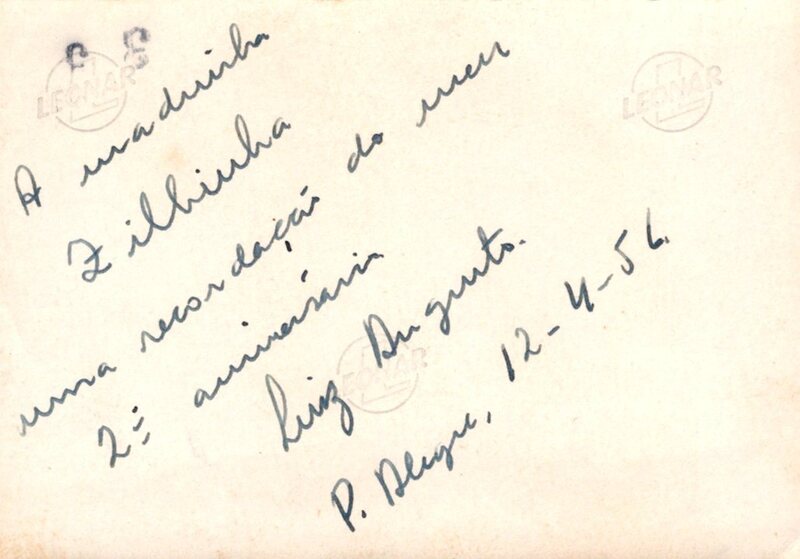 A madrinha
Zilhinha
uma recordação do meu
2º aniversário
Luiz Augusto.
P. Alegre, 12-4-56.
LEONAR
LEONAR
LEONAR